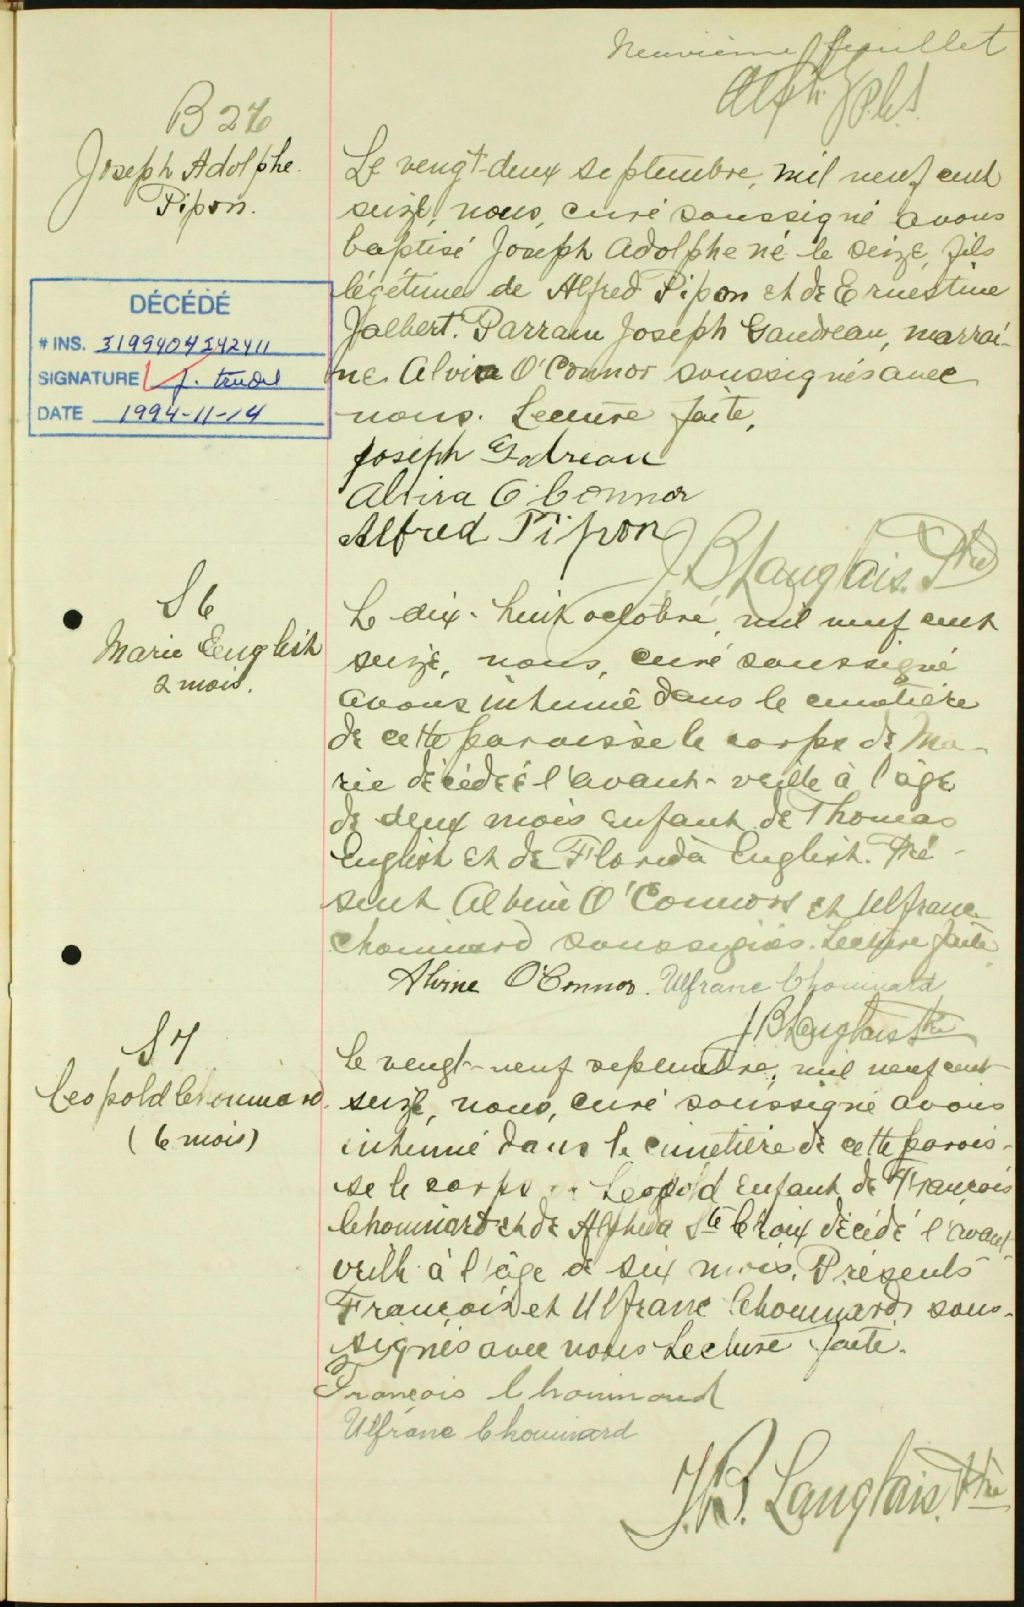 Neuvième feuillet
B 26
Joseph Adolphe
Pipon.
Le vengt-deux septembre, mil neuf cent
seize, nous, curé soussigné avons
baptisé Joseph Adolphe né le seize, fils
légétime de Alfred Pipon et de Ernestine
Jalbert. Parrain Joseph Gaudreau, marrai-
ne Alvira O'Connor soussignés avec
nous. Lecture faite,
Joseph Godreau
Alvira O'Connor
Alfred Pipon
J. B. Langlais. Ptre
DÉCÉDÉ
# INS. 3199404342411
SIGNATURE J. Trudel
DATE 1994-11-14
S 6
Marie English
2 mois.
Le dix-huit octobre, mil neuf cent
seize, nous, curé soussigné
avons inhumé dans le cimetière
de cette paroisse le corps de Ma-
rie décédée l'avant-veille à l'âge
de deux mois enfant de Thomas
English et de Florida English. Pré-
sent Albine O'Connors et Ulfranc
Chouinard soussignés. Lecture faite
Alvine O'Connor. Ulfranc Chouinard
J B Langlais Ptre
S 7
Leopold Chouinard.
(6 mois)
Le vengt-neuf septembre, mil neuf cent
seize, nous, curé soussigné avons
inhumé dans le cimetière de cette parois-
se le corps de Léopold enfant de François
Chouinard et de Alphéda Ste Croix décédé l'avant-
veille à l'âge de six mois. Présents
François et Ulfranc Chouinard sous-
signés avec nous Lecture faite.
François Chouinard
Ulfranc Chouinard
J. B. Langlais. Ptre